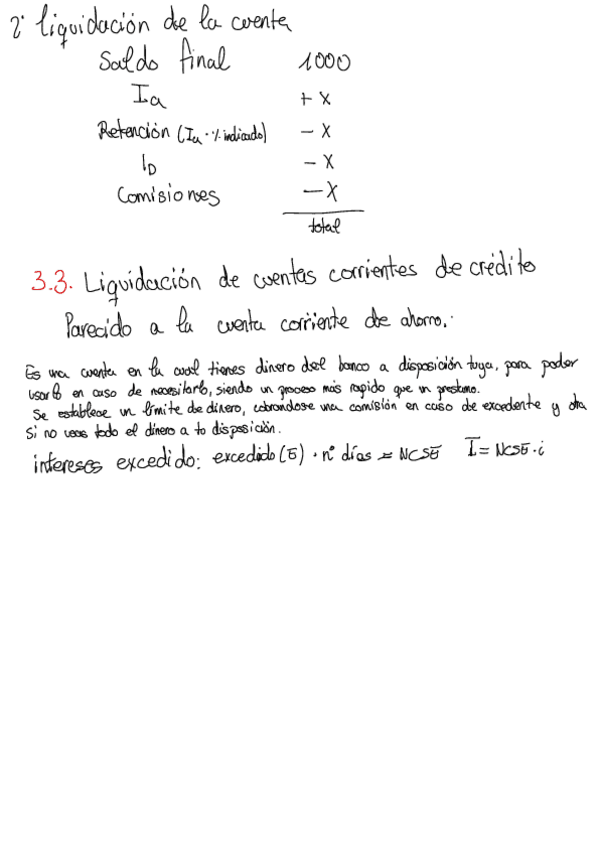 2º liquidación de la cuenta
Saldo final 1000
Ia + x
Retención (Ia · % indicado) - x
ID - x
Comisiones - x
total
3.3. Liquidación de cuentas corrientes de crédito
Parecido a la cuenta corriente de ahorro.
Es una cuenta en la cual tienes dinero del banco a disposición tuya, para poder
usarlo en caso de necesitarlo, siendo un proceso más rapido que un prestamo.
Se establece un límite de dinero, cobrandose una comisión en caso de excedente y otra
si no usas todo el dinero a tu disposición.
intereses excedido: excedido (E) · nº días = NCSE I = NCSE · i